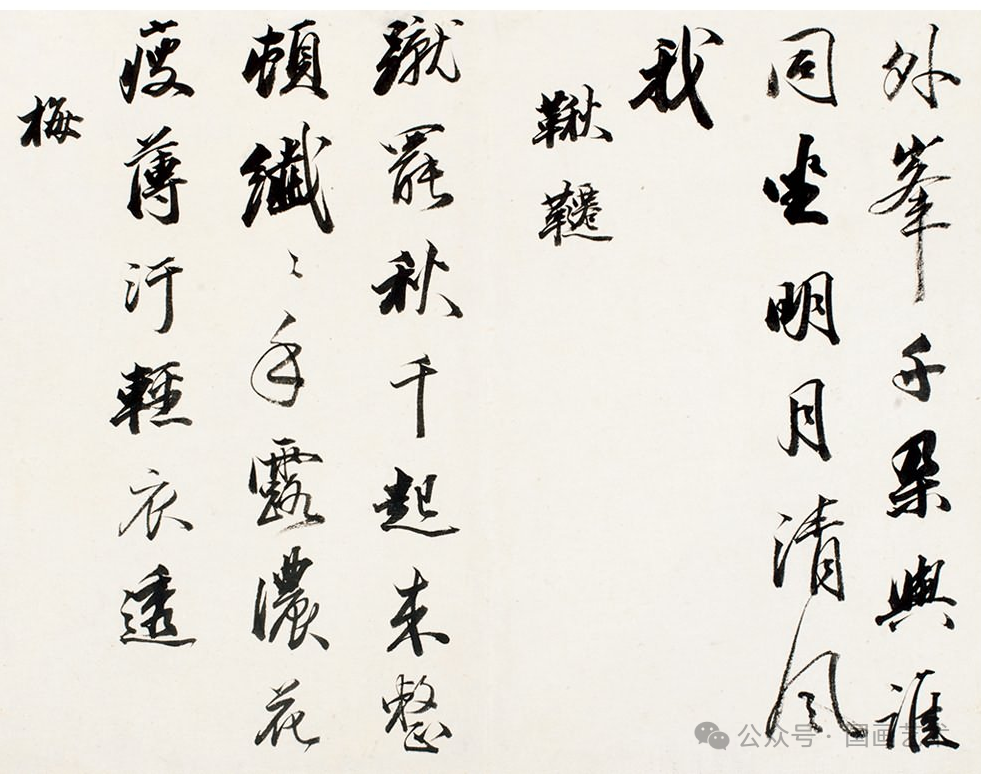 外峯千朶與誰
同坐明月清風
我
鞦韆
蹴罷秋千起来整
頓纖〻手露濃花
瘦薄汗輕衣透
梅
公众号·国画艺术